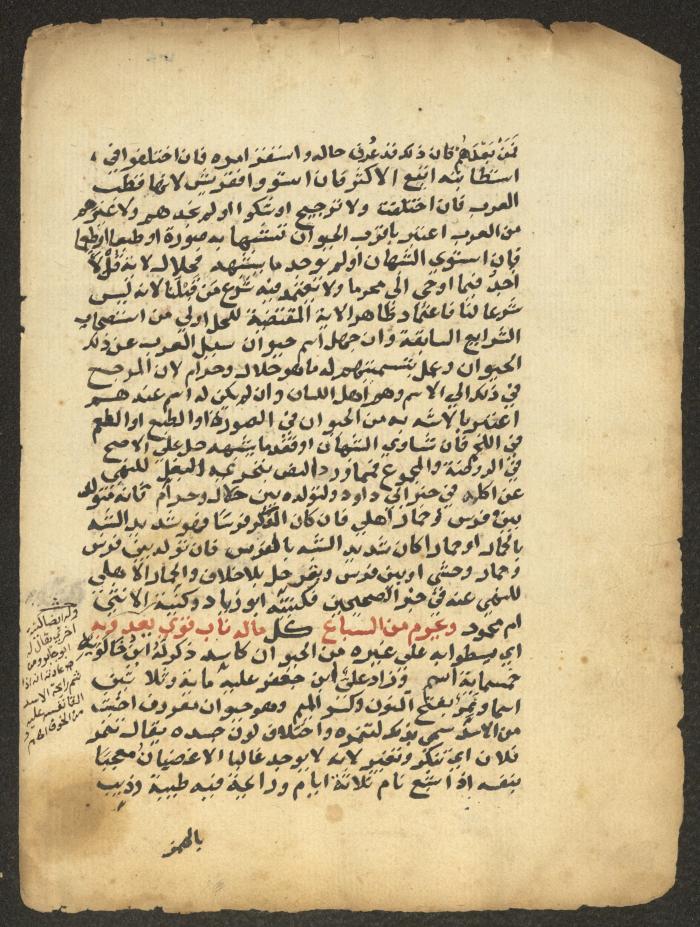 فمن بعدهم فان ذلك قد عرف حاله واستقر امره فان اختلفوا في
استطابته اتبع الاكثر فان استووا فقريش لانها قطب
العرب فان اختلفت ولا ترجيح او شكوا او لم نجدهم ولا غيرهم
من العرب اعتبر باقرب الحيوان شبها به صورة او طبعا او طعما
فان استوى الشبهان او لم يوجد ما يشبهه فحلال لاية قل لا
اجد فيما اوحي الي محرما ولا يعتمد فيه شرع من قبلنا لانه ليس
شرعا لنا فاعتماد ظاهر الاية المقتضية للحل اولى من استصحاب
الشرايع السابقة وان جهل اسم حيوان سيل العرب عن ذلك
الحيوان وعمل بتسميتهم له ما هو حلال وحرام لان المرجع
في ذلك الى الاسم وهم اهل اللسان وان لم يكن له اسم عندهم
اعتبر بالاشبه به من الحيوان في الصورة او الطبع او الطعم
في اللحم فان تساوى الشبهان او فقد ما يشبهه حل على الاصح
في الروضة والمجموع فمما ورد النص بتحريمه البغل للنهي
عن اكله في خبر ابي داود ولتولده بين حلال وحرام فانه متولد
بين فرس وحمار اهلي فان كان الذكر فرسا فهو شديد الشبه
بالحمار او حمارا كان شديد الشبه بالفرس فان تولد بين فرس
وحمار وحشي او بين فرس وبقر حل بلا خلاف والحمار الاهلي
للنهي عنه في خبر الصحيحين وكنيته ابو زياد وكنية الانثى
ام محمود ويحرم من السباع كل ما له ناب قوي يعدو به
اي يسطو به على غيره من الحيوان كاسد ذكر له ابن خالويه
خمسماية اسم وزاد علي بن جعفر عليه ماية وثلاثين
اسما ونمر بفتح النون وكسر الميم وهو حيوان معروف اخبث
من الاسد سمي بذلك لتنمره واختلاف لون جسده يقال تنمر
فلان اي تنكر وتغير لانه لا يوجد غالبا الا غضبان معجبا
بنفسه اذا شبع نام ثلاثة ايام ورايحة فيه طيبة وذيب
بالهمز
وله ايضا كنية
اخرى يقال له
ابو
من
عادته انه اذا
شم رايحة الاسد
القا نفسه عليه
من الخوف